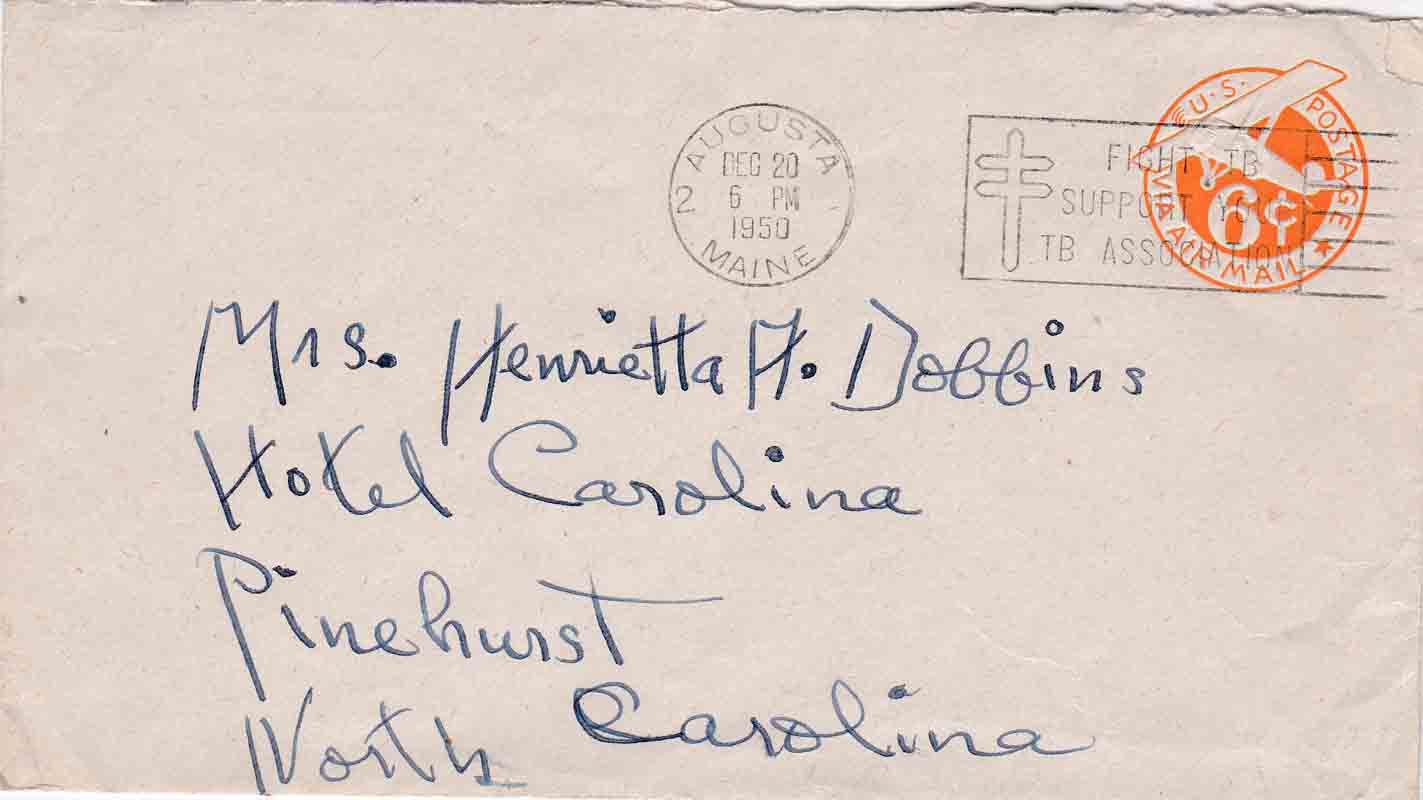 AUGUSTA
DEC 20
2 6 PM
1950
MAINE
FIGHT TB
SUPPORT YOUR
TB ASSOCIATION
U·S· POSTAGE
6¢
VIA AIR MAIL
Mrs. Henrietta H. Dobbins
Hotel Carolina
Pinehurst
North Carolina